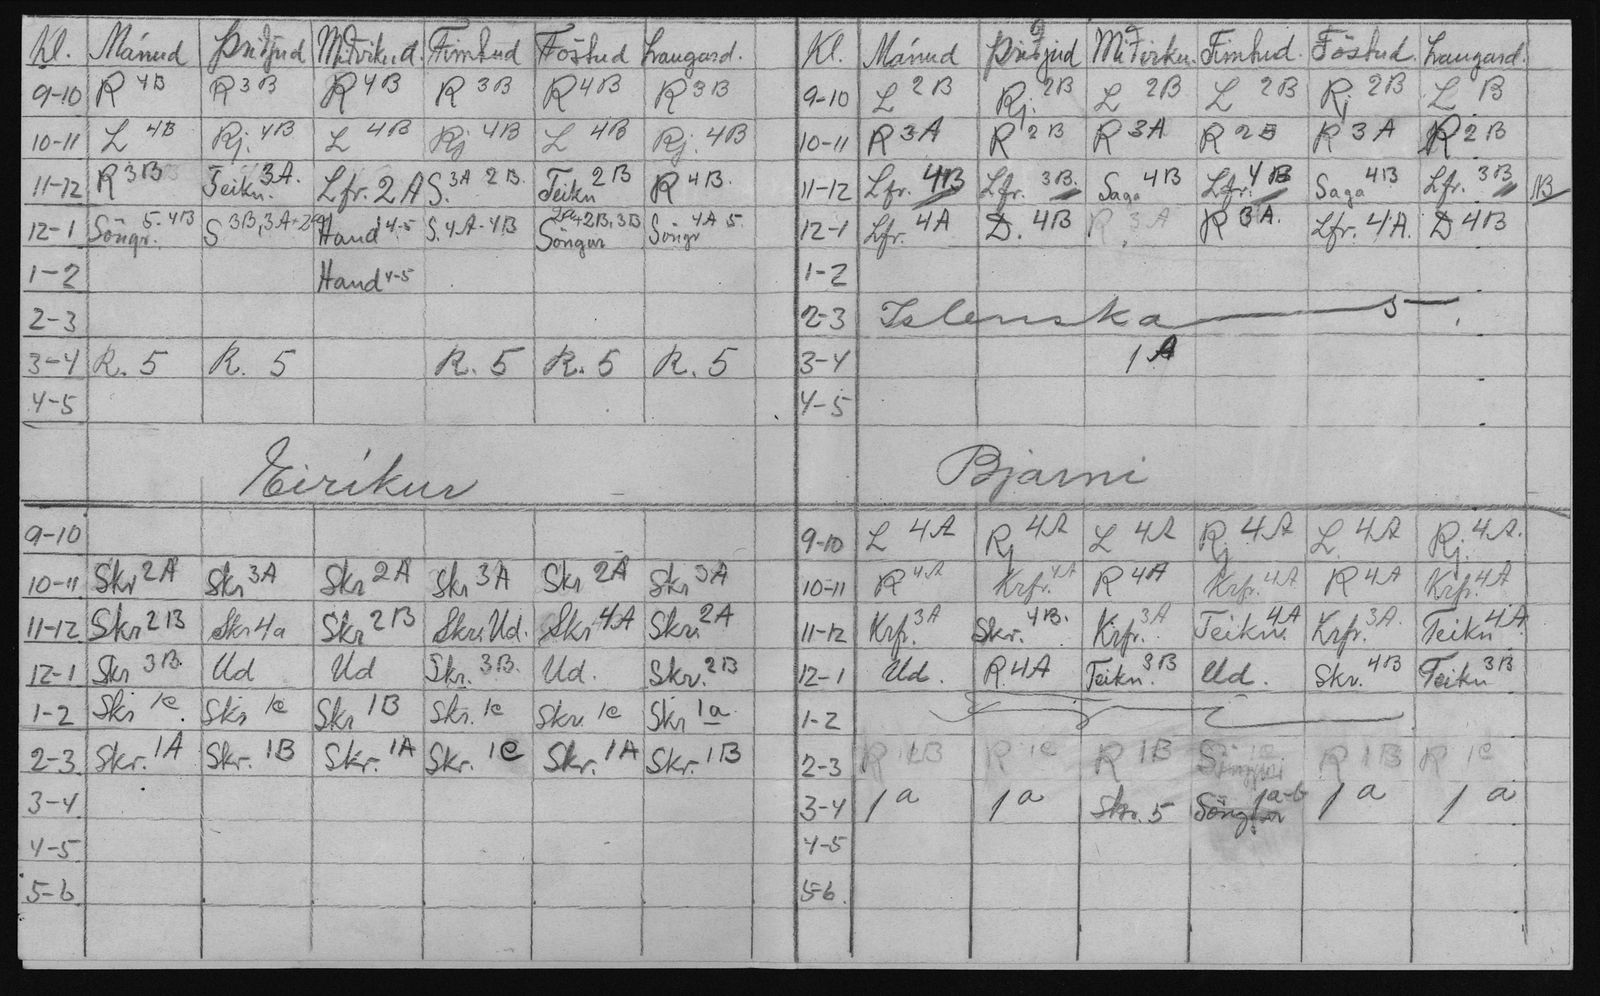 Kl. Mánud Þriðjud Miðvikud. Fimtud Föstud Laugard.
9-10 R 4B R 3B R 4B R 3B R 4B R 3B
10-11 L 4B Rj. 4B L 4B Rj 4B L 4B Rj. 4B
11-12 R 3B Teikn. 3A. Lfr. 2A S. 3A 2B. Teikn 2B R 4B.
12-1 Söngr. 5-4B S 3B, 3A+2A Hand 4-5 S. 4A-4B Söngur 2A+2B, 3B Söngr 4A 5
1-2 Hand 4-5
2-3
3-4 R. 5 R. 5 R. 5 R. 5 R. 5
4-5
Eiríkur
9-10
10-11 Skr 2A Skr 3A Skr 2A Skr 3A Skr 2A Skr 3A
11-12 Skr 2B Skr 4a Skr 2B Skr. Ud. Skr 4A Skr. 2A
12-1 Skr 3B. Ud Ud Skr. 3B. Ud. Skr. 2B
1-2 Skr 1c. Skr 1c Skr 1B Skr. 1c Skr. 1c Skr 1a
2-3 Skr. 1A Skr. 1B Skr. 1A Skr. 1C Skr. 1A Skr. 1B
3-4
4-5
5-6
Kl. Mánud Þriðjud Miðvikud. Fimtud. Föstud. Laugard.
9-10 L 2B Rj. 2B L 2B L 2B Rj 2B L B
10-11 R 3A R 2B R 3A R 2B R 3A R 2B
11-12 Lfr. 4B Lfr. 3B. Saga 4B Lfr. 4B Saga 4B Lfr. 3B 1B
12-1 Lfr. 4A D. 4B R 3A R 3A. Lfr. 4A. D 4B
1-2
2-3 Islenska 5
3-4 1A
4-5
Bjarni
9-10 L 4A Rj 4A L 4A Rj 4A L 4A Rj. 4A.
10-11 R 4A Krfr. 4A R 4A Krfr. 4A R 4A Krfr. 4A
11-12 Krfr. 3A Skr. 4B. Krfr. 3A Teikn. 4A Krfr. 3A. Teikn 4A
12-1 Ud. R. 4A Teikn. 3B Ud. Skr. 4B Teikn 3B
1-2
2-3 R 1B R 1c R 1B R 1B R 1c
3-4 1a 1a Skr. 5 Söngur 1a-b 1a 1a
4-5
5-6